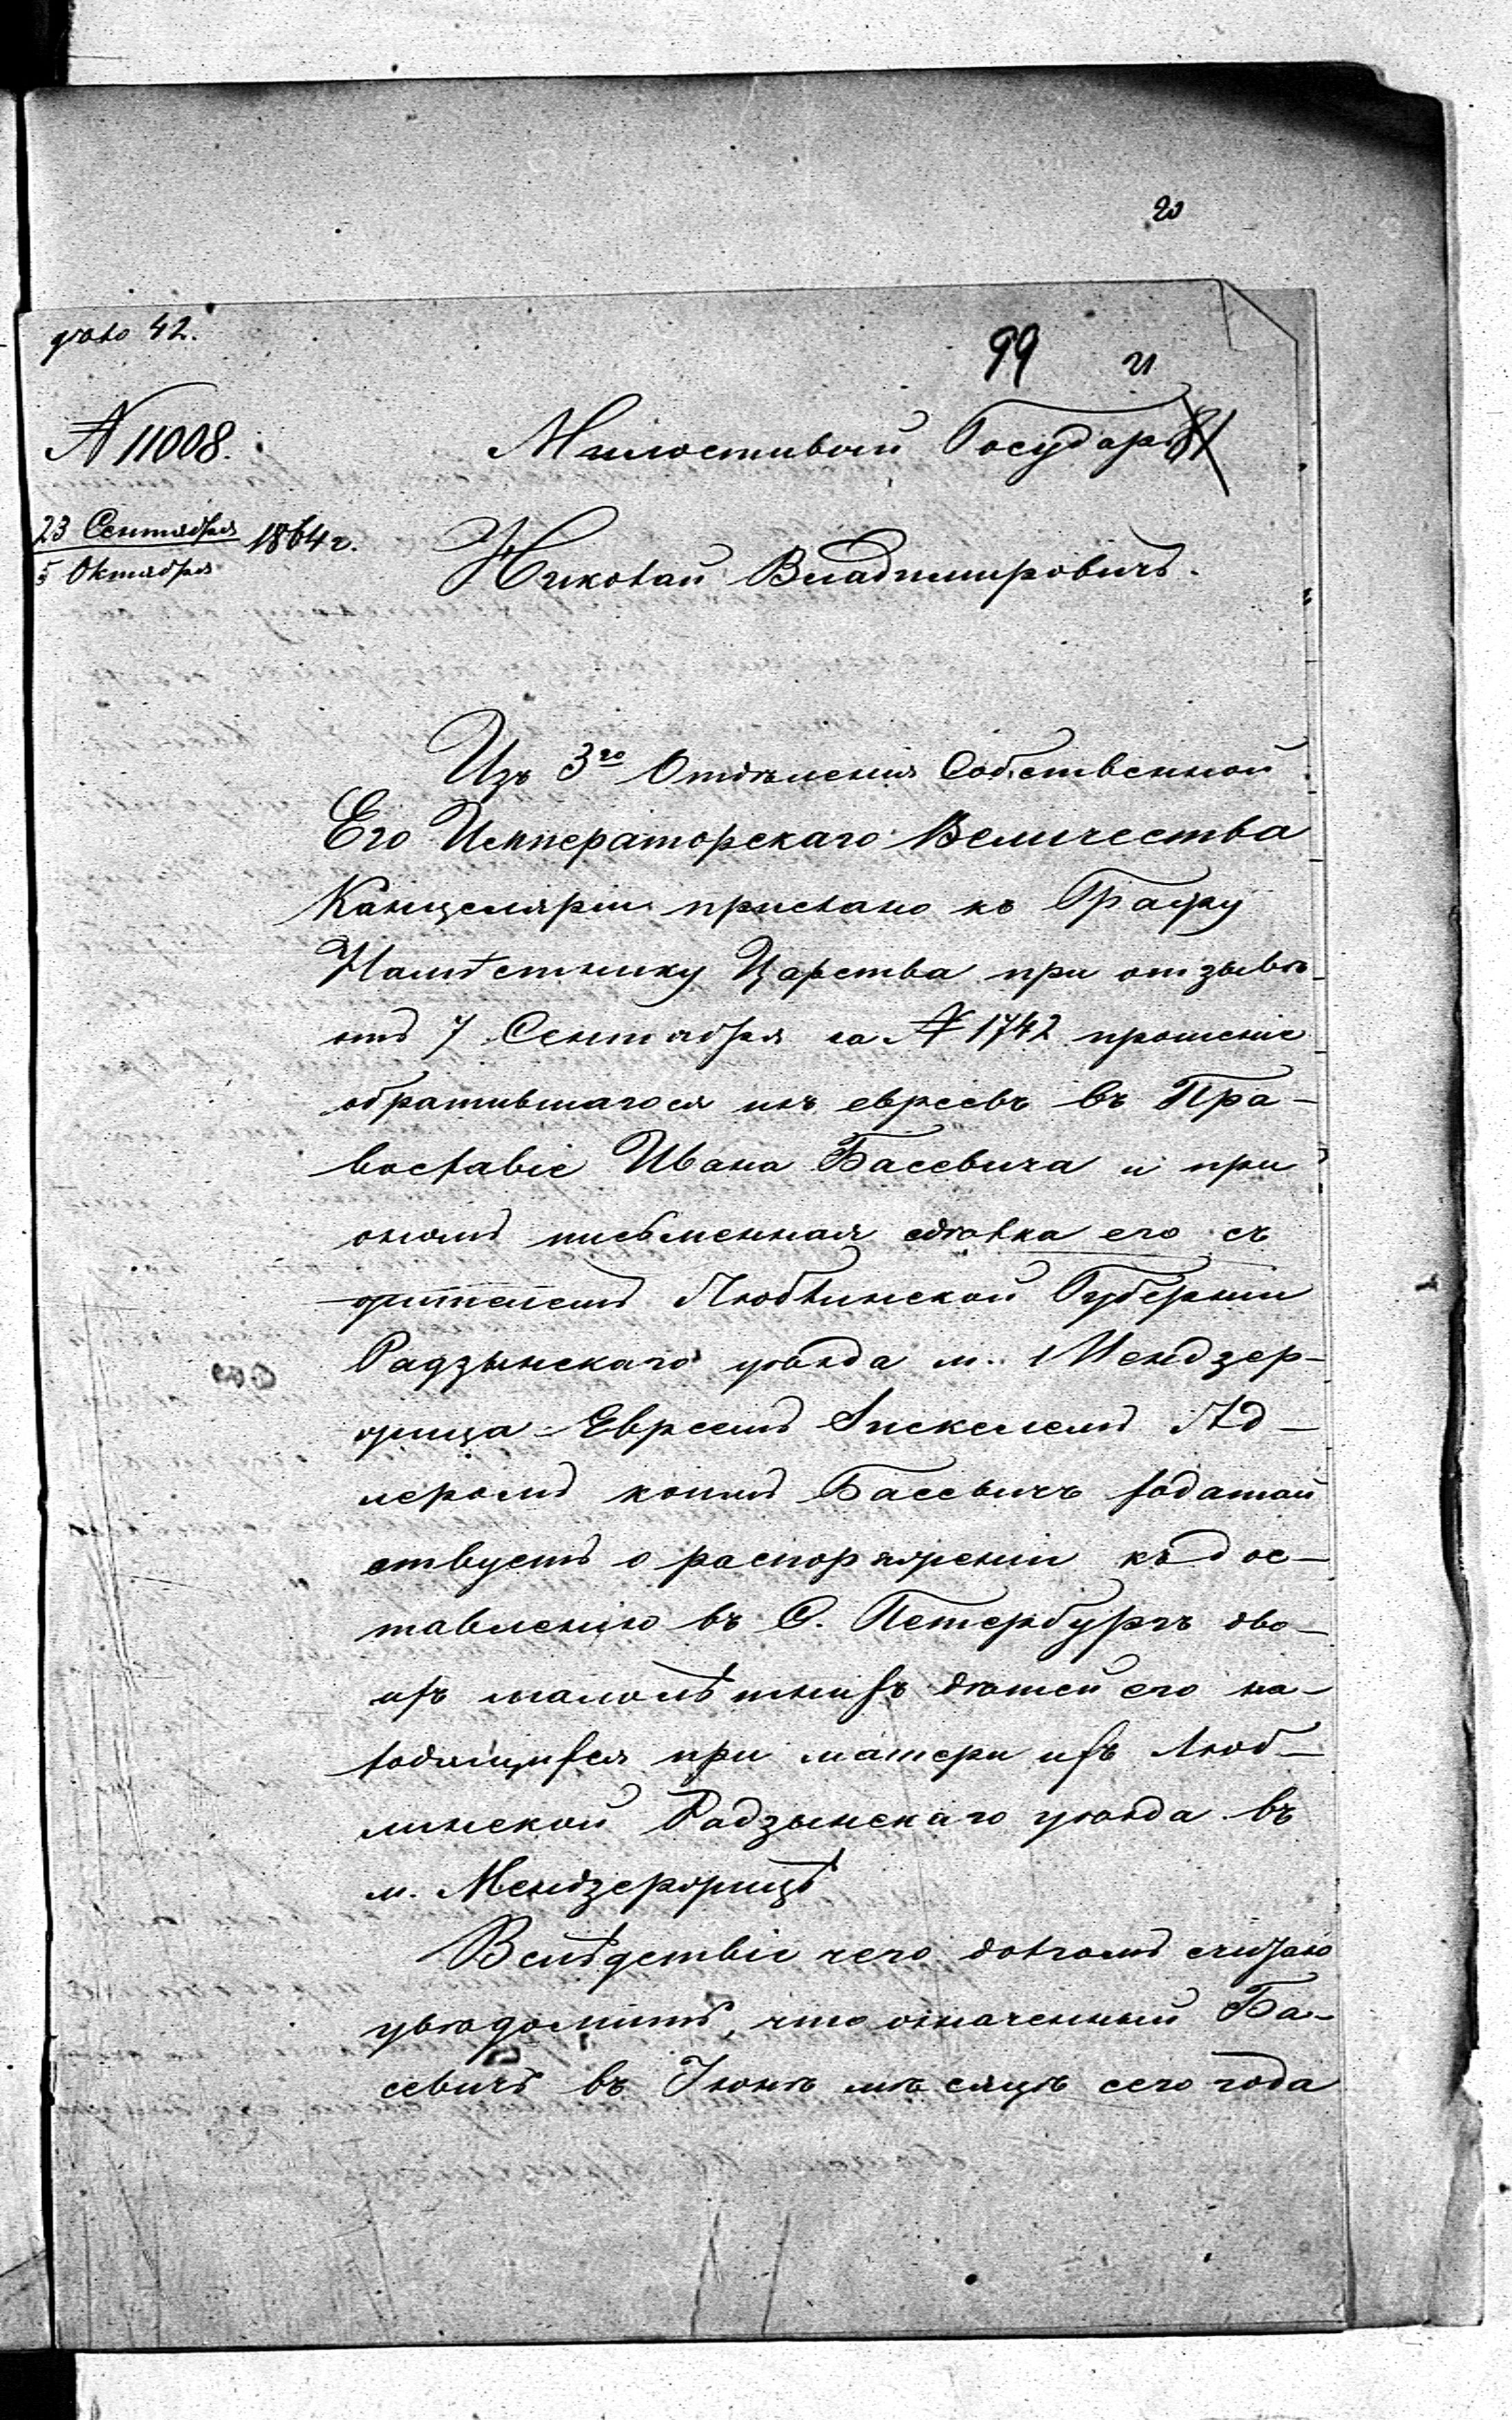 20
дѣло 42.
99 21
N 11008.
Милостивый Государь
81
23 Сентября 1864 г.
5 Октября
Николай Владимировичъ.
Изъ 3го Отдѣленія Собственной
Его Императорскаго Величества
Канцеляріи прислано къ Графу
Намѣстнику Царства при отзывѣ
отъ 7 Сентября за N 1742 прошеніе
обратившагося изъ евреевъ въ Пра-
вославіе Ивана Басевича и при
ономъ письменная сдѣлка его съ
жителемъ Люблинской Губерніи
Радзынскаго уѣзда м. Мендзер-
жица Евреемъ Ад-
леромъ коимъ Басевичъ ходатай
ствуетъ о распоряженіи къ дос-
тавленію въ С. Петербургъ дво-
ихъ малолѣтнихъ дѣтей его на-
ходящихся при матери ихъ Люб-
линской Радзынскаго уѣзда въ
м. Мендзержицѣ
Вслѣдствіе чего долгомъ считаю
увѣдомить, что означенный Ба-
севичъ въ Іюнѣ мѣсяцѣ сего года